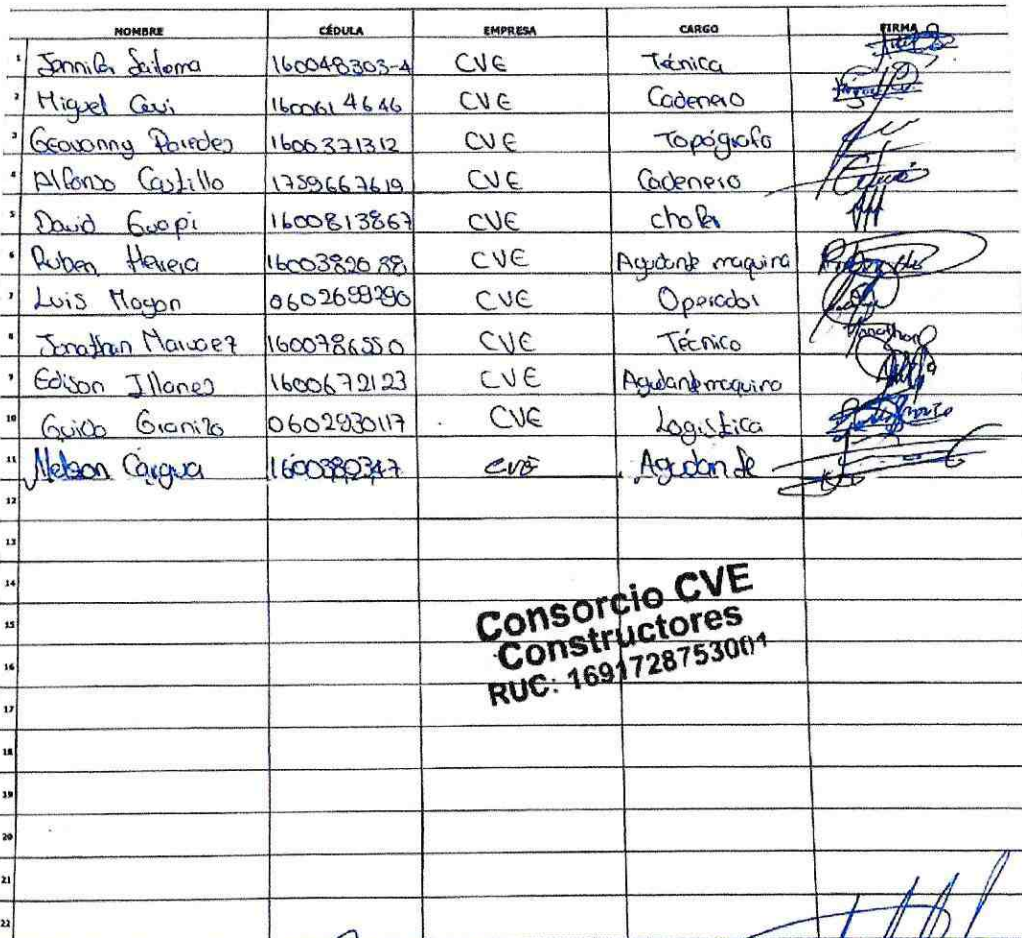 NOMBRE CÉDULA EMPRESA CARGO FIRMA
1 Jennifer 160048303-4 CVE Técnica
2 Miguel 1600614646 CVE Cadenero
3 Geovanny Paredes 1600371312 CVE Topógrafo
4 Alfonso Castillo 1759667619 CVE Cadenero
5 David Guapi 1600813867 CVE chofer
6 Ruben Herrera CVE Ayudante maquina
7 Luis Magon CVE Operador
8 Jonathan Narvaez 1600786550 CVE Técnico Jonathan
9 Edison Illanes 1600672123 CVE Ayudante maquina
10 Guido Granizo 0602930117 CVE Logistica
11 Nelson Cargua 1600380347 CVE Ayudante
12
13
14
15
16
17
18
19
20
21
22
Consorcio CVE
Constructores
RUC: 1691728753001